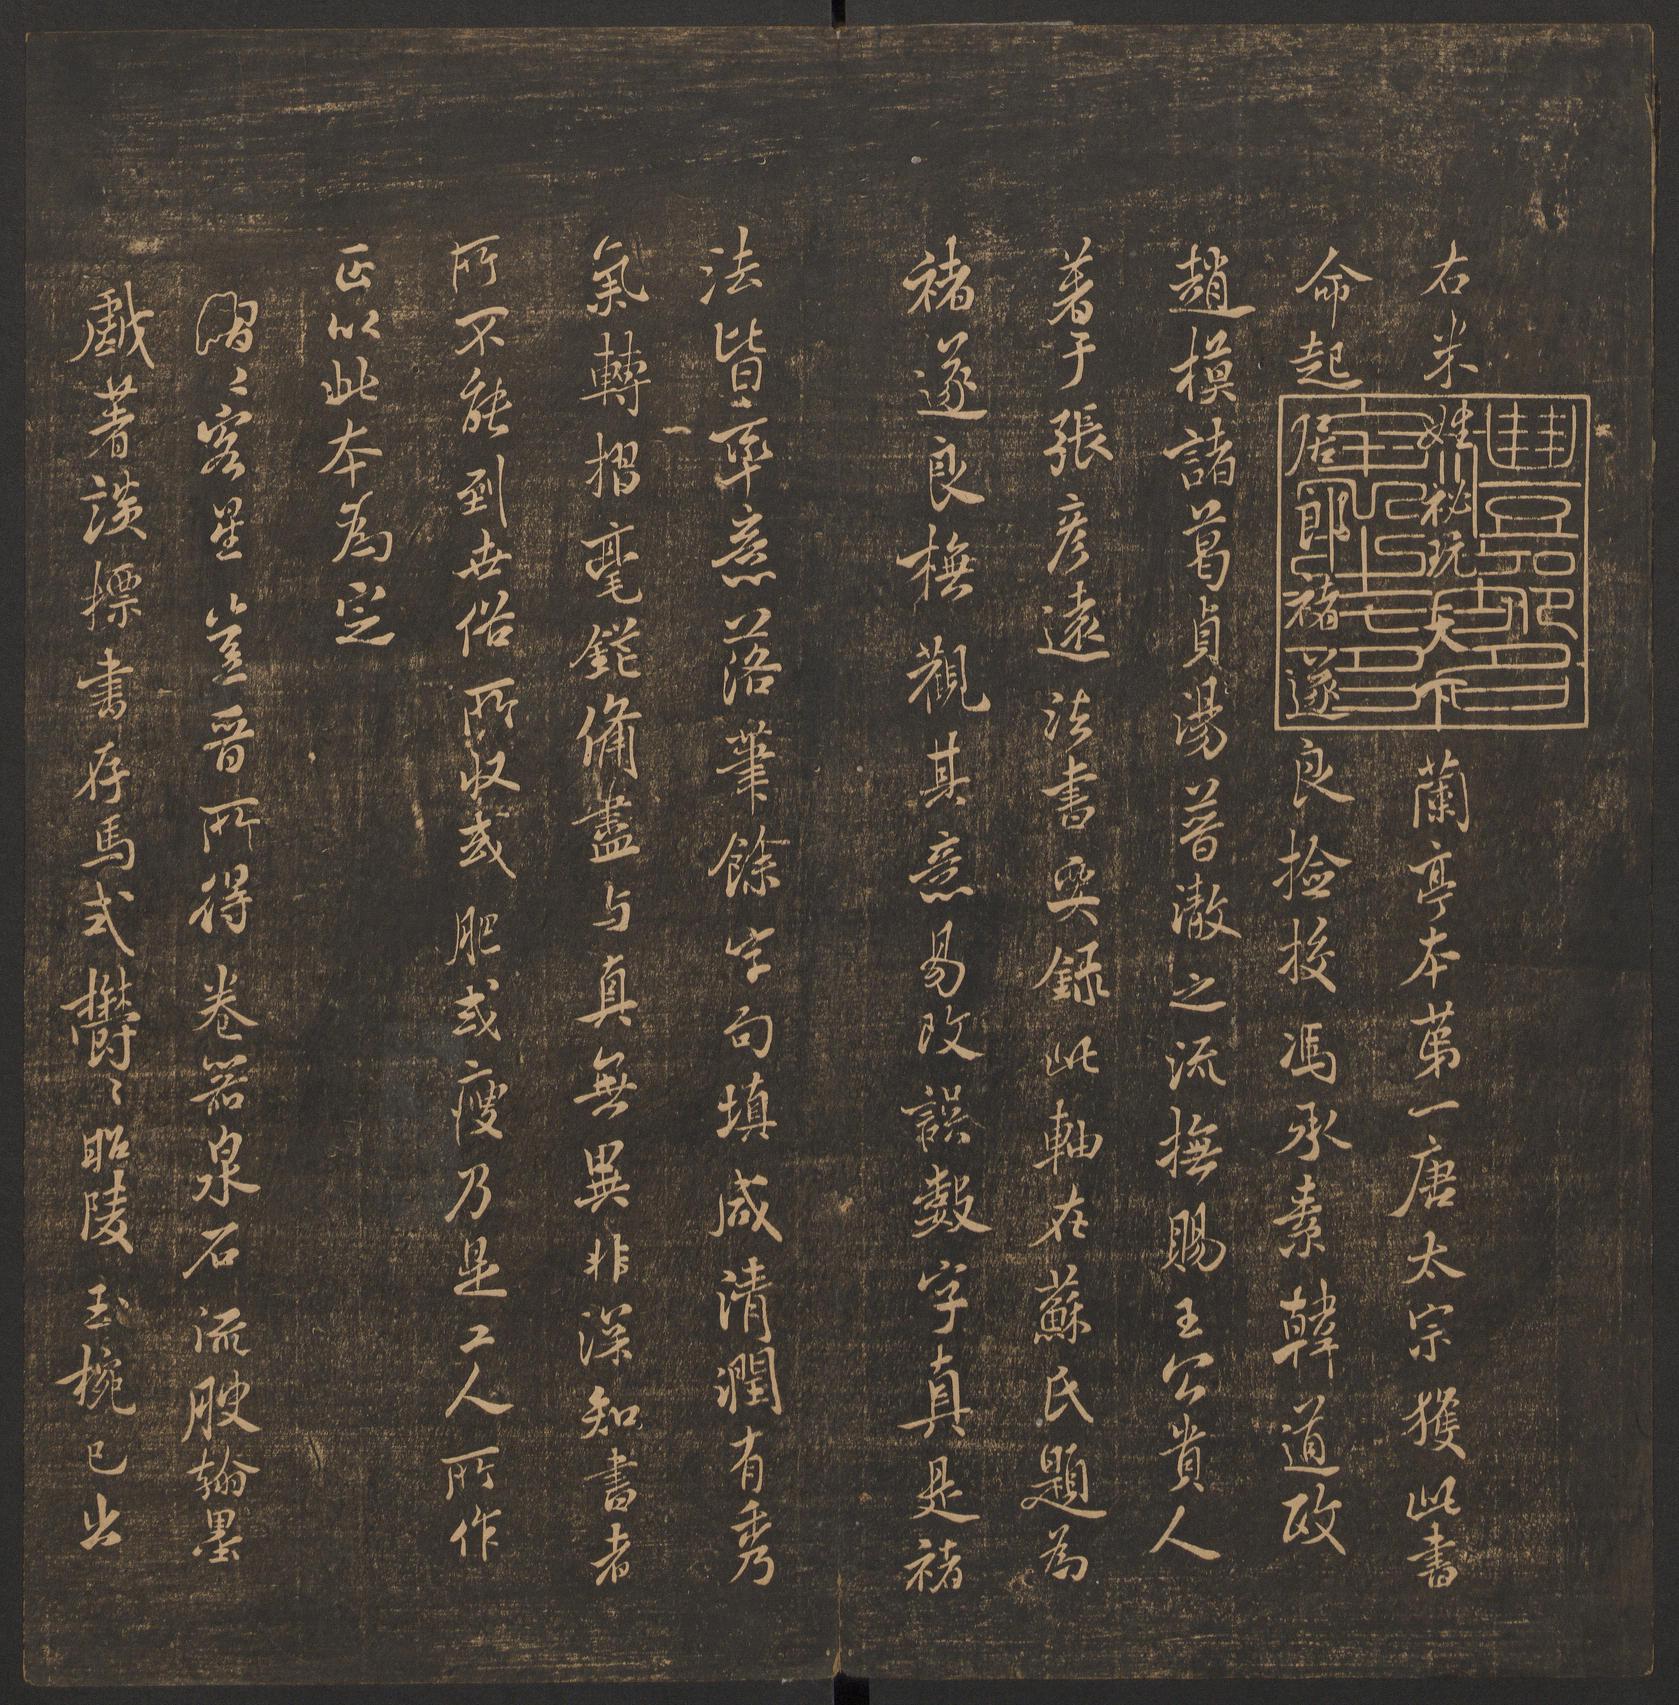 右米姓秘玩天下蘭亭本第一唐太宗獲此書
命起居郎褚遂良撿挍馮承素韓道政
趙模諸葛貞湯普澈之流撫賜王公貴人
著于張彥遠法書要錄此軸在蘇氏題為
褚遂良橅觀其意易改誤數字真是褚
法皆率意落筆餘字句填咸清潤有秀
氣轉摺毫鋩俻盡与真無異非深知書者
所不能到世俗所收或肥或瘦乃是工人所作
正以此本為定
熠〻客星豈晉所得卷器泉石流腴翰墨
戲著談標書存馬式欝〻昭陵玉椀已出